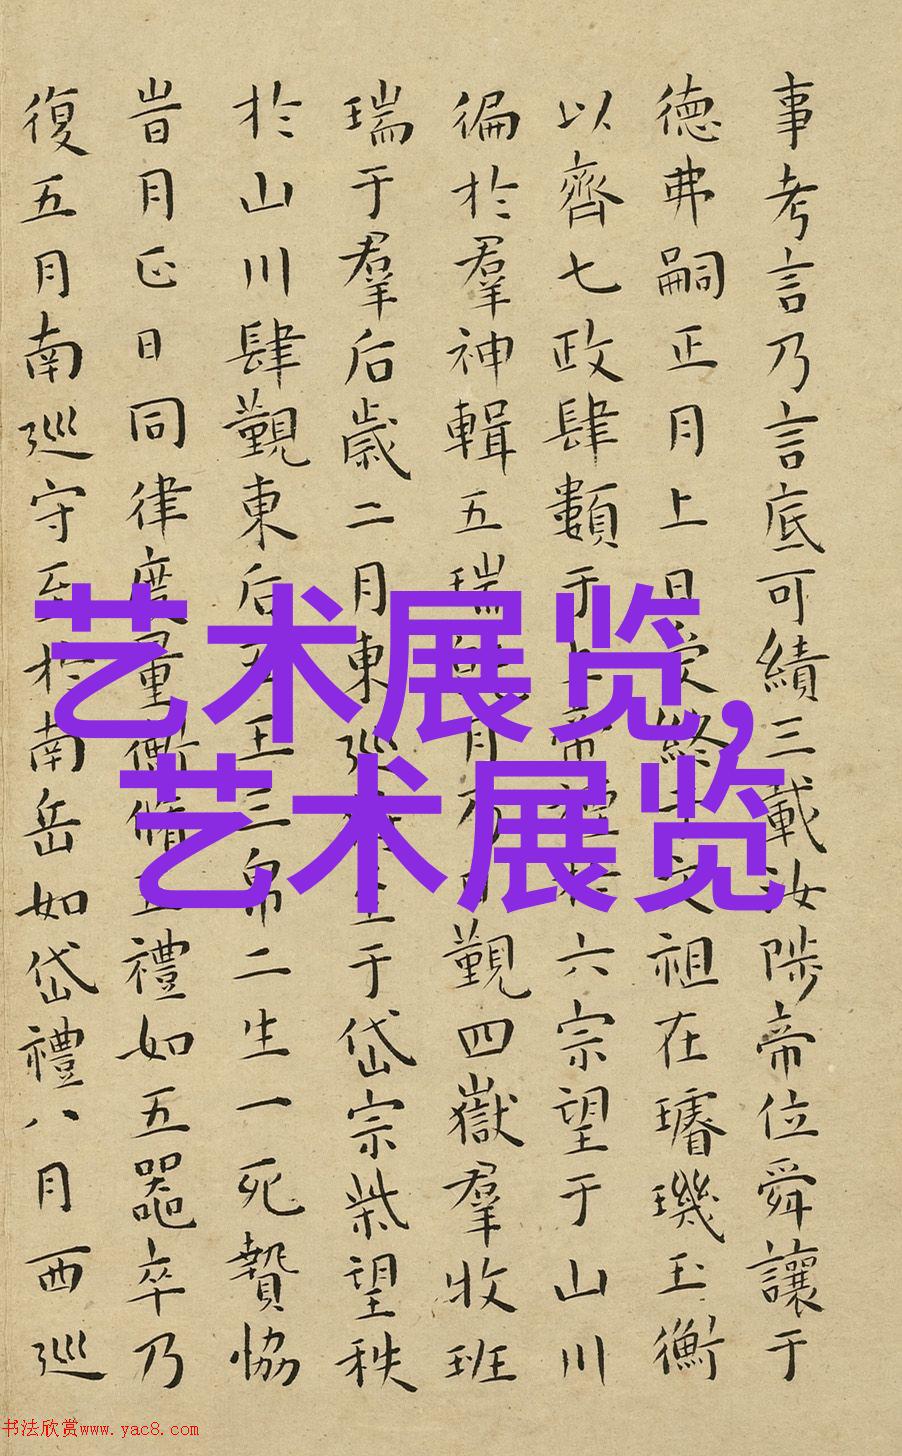 事考言乃言底可績三載汝陟帝位舜讓于
德弗嗣正月上日受終于文祖在璿璣玉衡
以齊七政肆類于上帝禋於六宗望于山川
徧於羣神輯五瑞既月乃日覲四嶽羣收班
瑞于羣后歲二月東巡至于岱宗柴望秩
於山川肆覲東后五玉三帛二生一死贄協
旹月正日同律度量衡脩五禮如五器卒乃
復五月南巡守至於南岳如岱禮八月西巡
艺术展览,
艺术展览
书法欣赏www.yac8.com